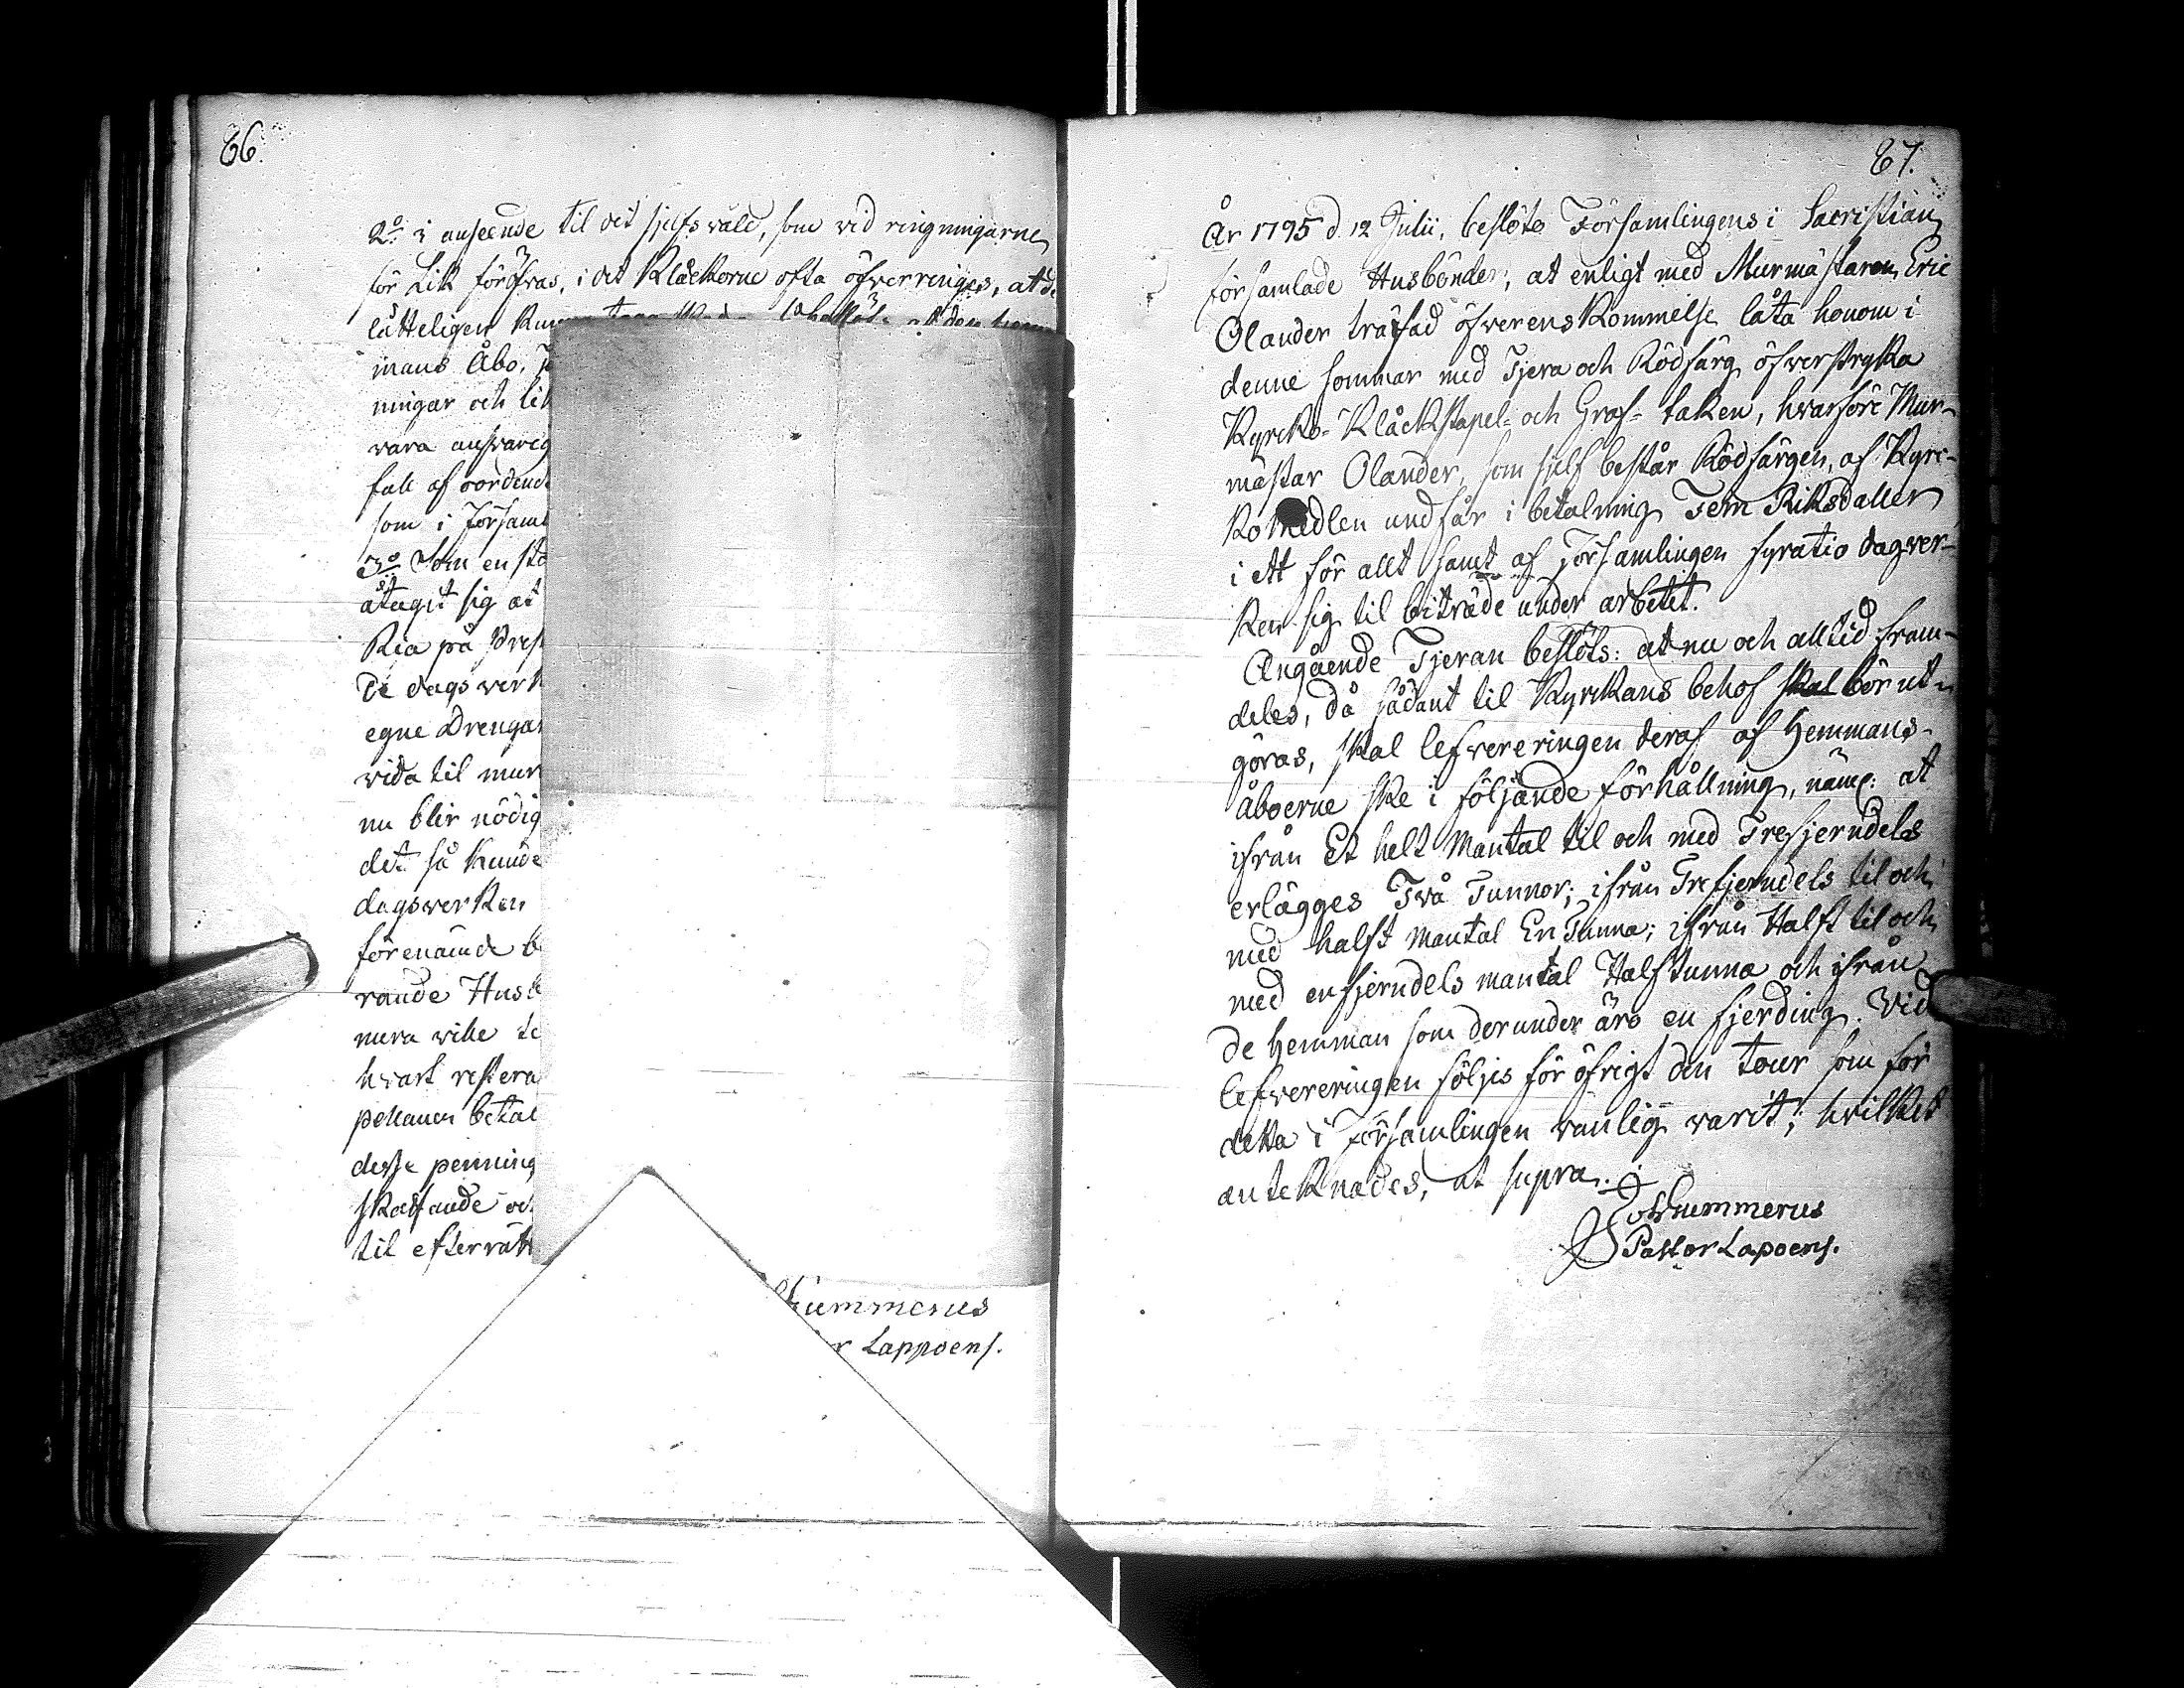 66.
2:o i anseende til det sjelfswåld, som vid ringningarne
för Lik föröfvas, i det Klåckorne ofta öfverringes, at de
låtteligen
mans Åbo,
ningar och lik
vara answarig
fall af oordend
som i Församl
3:o Som en stö
åtagit sig at
Ria på Prest
De dagsverk
egne Drengar
vida til mur
nu blir nödig
det så kunde
dagsverken
förenämde b
rande Husb
mera wille
hvart restera
pellanen betal
desse penning
skaffande oc
til efterrätt
hummerus
r Lappoens.
67.
År 1795 d. 12 Julii, beslöto Församlingens i Sacristian
församlade Husbönder; at enligt med Murmästaren Eric
Olander träffad öfverenskommelse låta honom i
denne sommar med Tjera och Rödfärg öfverstryka
Kyrcko- Klåckstapel- och Graf- taken, hvarföre Mur-
mästar Olander, som sjelf består Rödfärgen, af Kyrc-
komedlen undfår i betalning Fem Riksdaller
i ett för allt samt af Församlingen fyratio dagver-
ken sig til biträde under arbetet.
Angående Tjeran beslöts: at nu och alltid fram-
deles, då sådant til Kyrkans behof skal bör ut-
göras, skal lefvereringen deraf af Hemmans-
åboerne ske i följande förhållning, näml: at
ifrån Et helt Mantal til och med Trefjerndels
erlägges Två Tunnor; ifrån Trefjerndels til och
med halft Mantal En Tunna; ifrån Halft til och
med enfjerndels mantal Half tunna och ifrån
de Hemman som derunder äro en fjerding. Vid
lefvereringen följes för öfrigt den tour som för
detta i Församlingen vanlig varit; hvilket
anteknades, ut supra.
Hummerus
Pastor Lapoens.